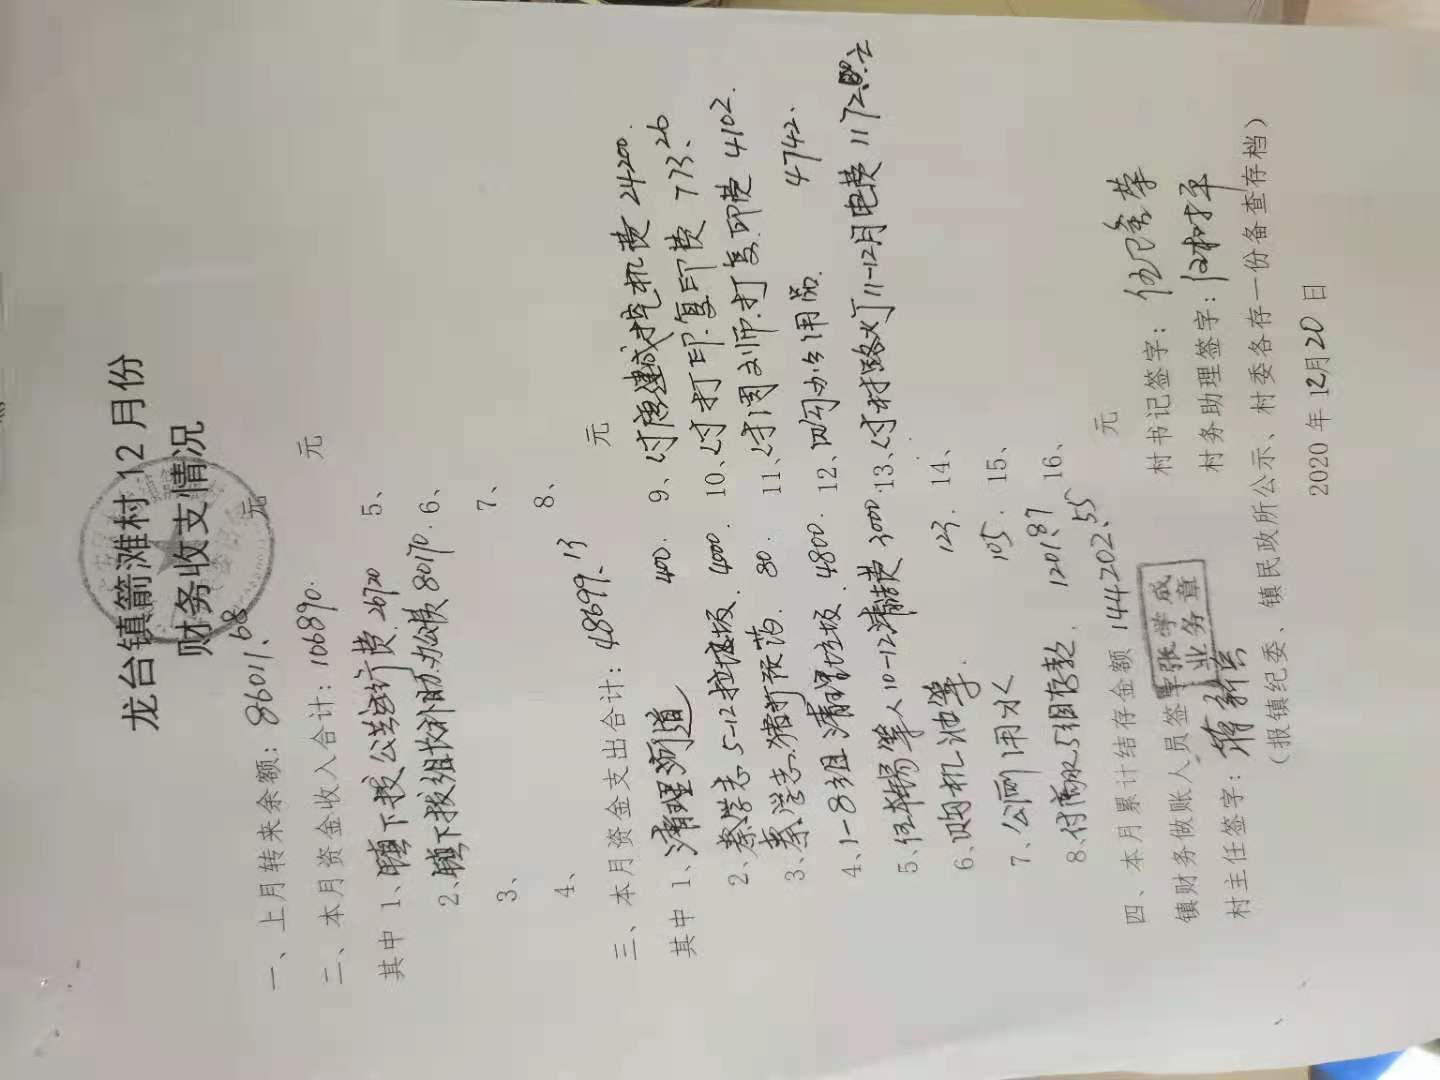 龙台镇箭滩村12月份
财务收支情况
一、上月转来余额：86011.68 元
二、本月资金收入合计：106890. 元
其中 1、镇下拨公共运行费 26720 5、
2、镇下拨组长补助.办公费 80170. 6、
3、 7、
4、 8、
三、本月资金支出合计：48699.13 元
其中 1、清理河道 400. 9、付唐建成挖机费 24200.
2、秦学志 5-12拉垃圾. 4000. 10、付打印.复印费 773.26
3、秦学志.猪打预药. 80. 11、付周刘师.打复.印费 4102.
4、1-8组清理垃圾. 4800. 12、四勾办公用品. 4742.
5、伍华锡等人10-12清洁费 3000. 13、付村路灯11-12月电费 1172.
6、购机油等. 123. 14、
7、公厕用水 105. 15、
8、付商砼5组存款. 1201.87 16、
四、本月累计结存金额 144202.55 元
镇财务做账人员签字： 村书记签字：
张学成
业务章
村主任签字：蒋新兵 村务助理签字：
（报镇纪委、镇民政所公示、村委各存一份备查存档）
2020 年 12月 20 日